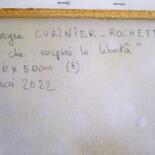 CURINIER-ROCHETT
che sospiri la libertà"
0 x 50cm (8)
2022